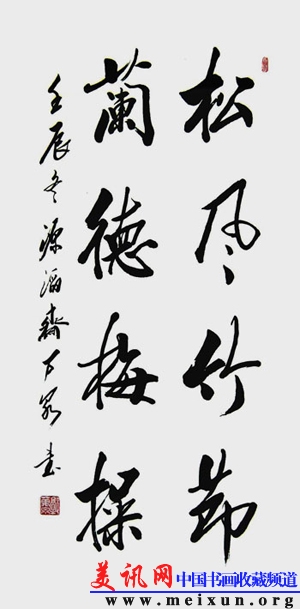 松风竹节
蘭德梅操
壬辰冬源滔齋万影书
美讯网 中国书画收藏频道
www.meixun.org